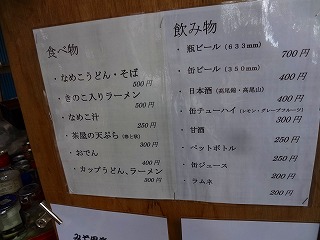 食べ物
・なめこうどん・そば
500円
・きのこ入りラーメン
500円
・なめこ汁
250円
・茶屋の天ぷら
300円
・おでん
400円
・カップうどん、ラーメン
300円
飲み物
・瓶ビール(633mm)
700円
・缶ビール(350mm)
400円
・日本酒(高尾錦・高尾山)
400円
・缶チューハイ(レモン・グレープフルーツ)
300円
・甘酒
300円
・ペットボトル
250円
・缶ジュース
250円
・ラムネ
200円
200円